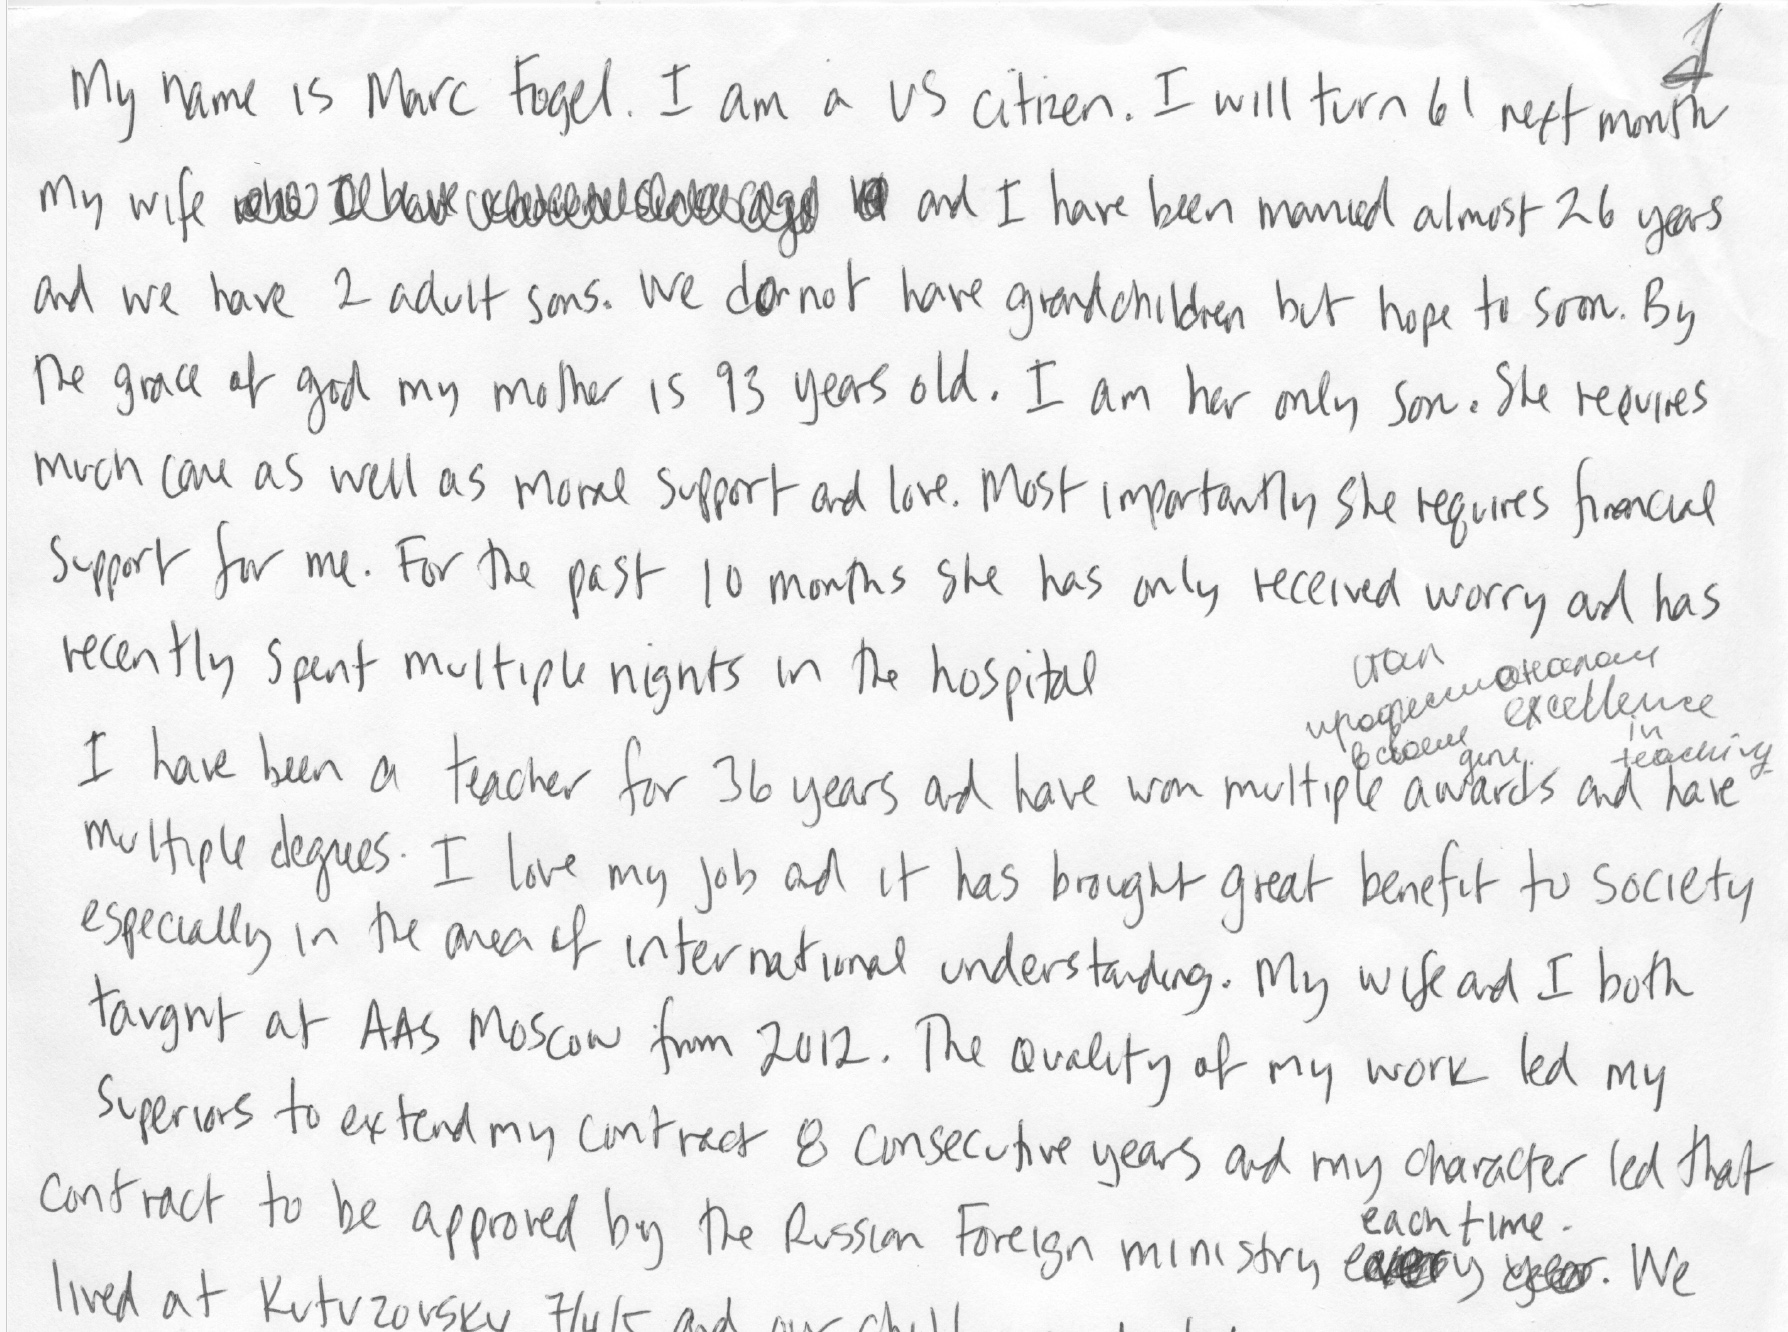 1
My name is Marc Fogel. I am a US citizen. I will turn 61 next month
My wife and I have been married almost 26 years
and we have 2 adult sons. We do not have grandchildren but hope to soon. By
the grace of god my mother is 93 years old. I am her only son. She requires
much care as well as moral support and love. Most importantly she requires financial
support for me. For the past 10 months she has only received worry and has
recently spent multiple nights in the hospital
excellence
in
teaching
I have been a teacher for 36 years and have won multiple awards and have
multiple degrees. I love my job and it has brought great benefit to society
especially in the area of international understanding. My wife and I both
taught at AAS Moscow from 2012. The quality of my work led my
superiors to extend my contract 8 consecutive years and my character led that
contract to be approved by the Russian Foreign ministry each time. We
lived at Kutuzovsky 7/4/5 and our